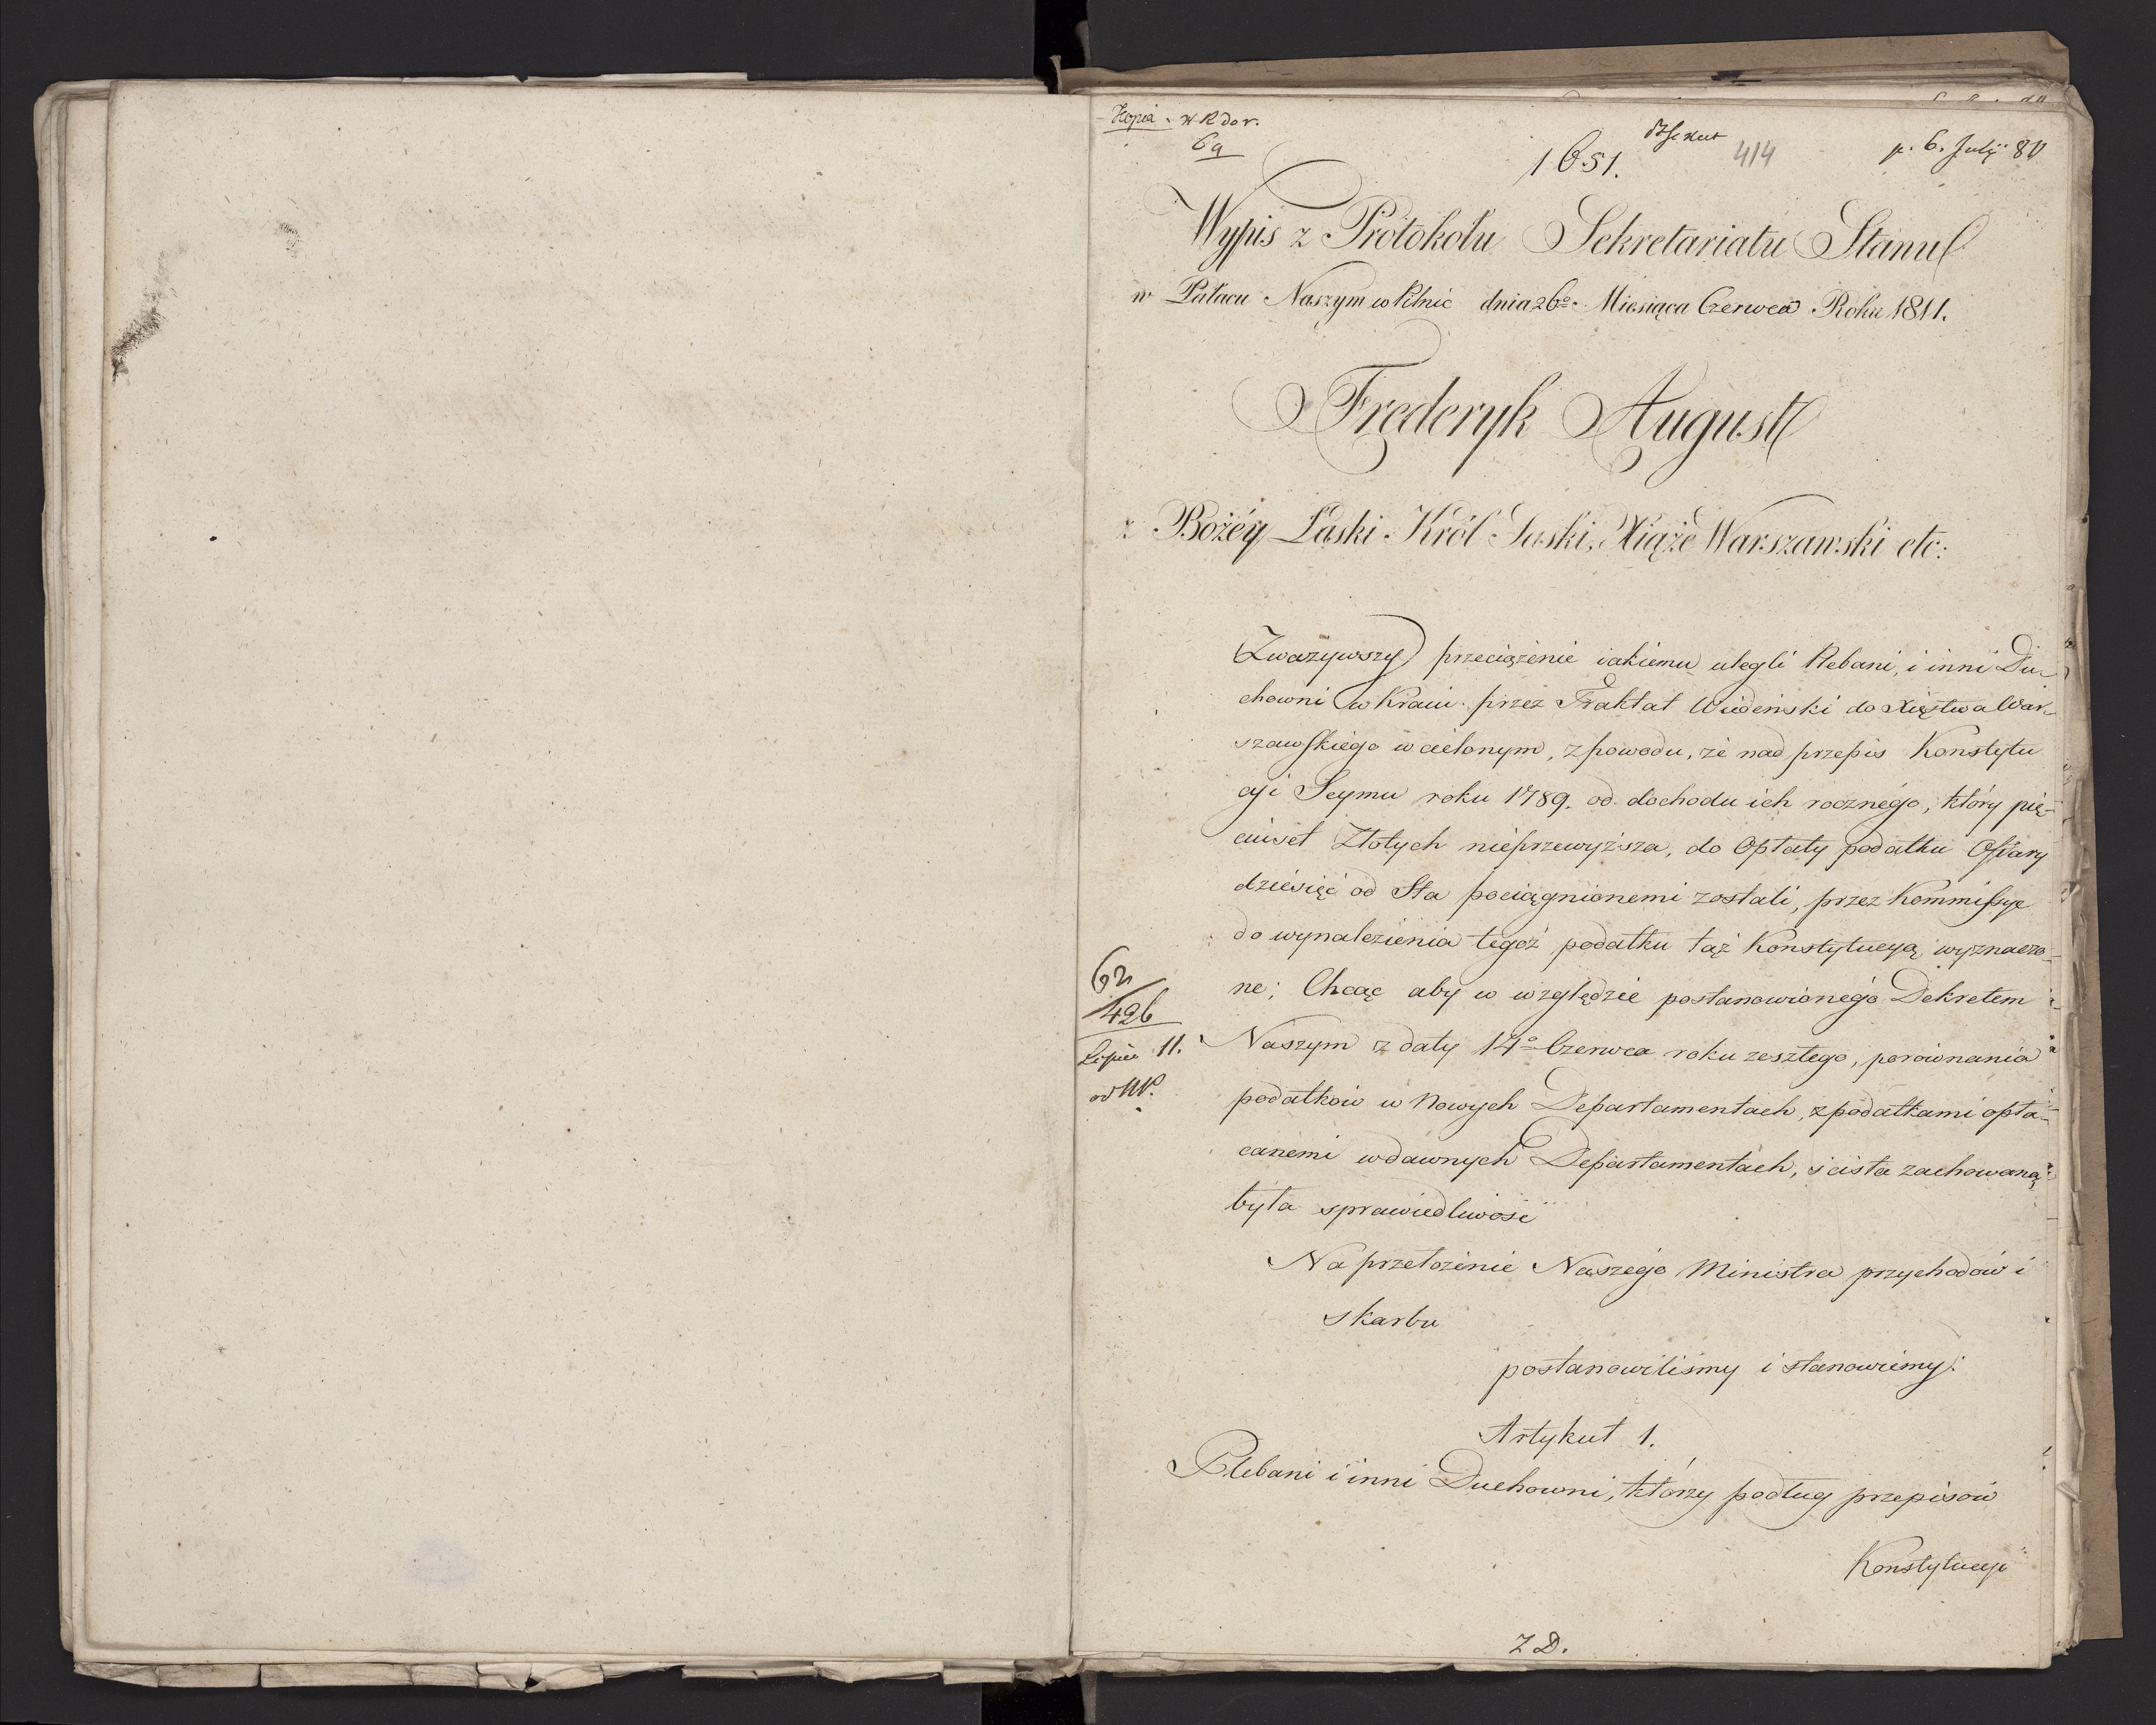 Kopia. w R dor.
69
1651.
414
p. 6. Julÿ 811
Wypis z Protokołu Sekretariatu Stanu
w Pałacu Naszym w Pilnic dnia 26º Miesiąca Czerwca Roku 1811.
Frederyk August
z Bożéy Łaski Król Saski, Xiąże Warszawski etc:
Zważywszy przeciążenie iakiemu ulegli Plebani, i inni Du-
chowni w Kraiu przez Traktat Wiedeński do Xięztwa War-
szawskiego wcielonym, z powodu, że nad przepis Konstytu
cyi Seymu roku 1789. od dochodu ich rocznégo, który pię-
ciuset Złotych nieprzewyższa, do Opłaty podatku Ofiary
dziesięć od Sta pociągnionemi zostali, przez Kommissye
do wynalezienia tegoż podatku taż Konstytucyą wyznaczo-
ne; Chcąc aby w względzie postanowionégo Dekretem
Naszym z daty 14º Czerwca roku zeszłego, porównania
podatków w Nowych Departamentach, z podatkami opła-
canemi w dawnych Departamentach, ścisła zachowaną
była sprawiedliwość
Na przełożenie Naszégo Ministra przychodów i
Skarbu
postanowiliśmy i stanowiemy:
Artykuł 1.
Plebani i inni Duchowni, którzy podług przepisów
Konstytucyi
62
426
Lipca 11.
Z D.